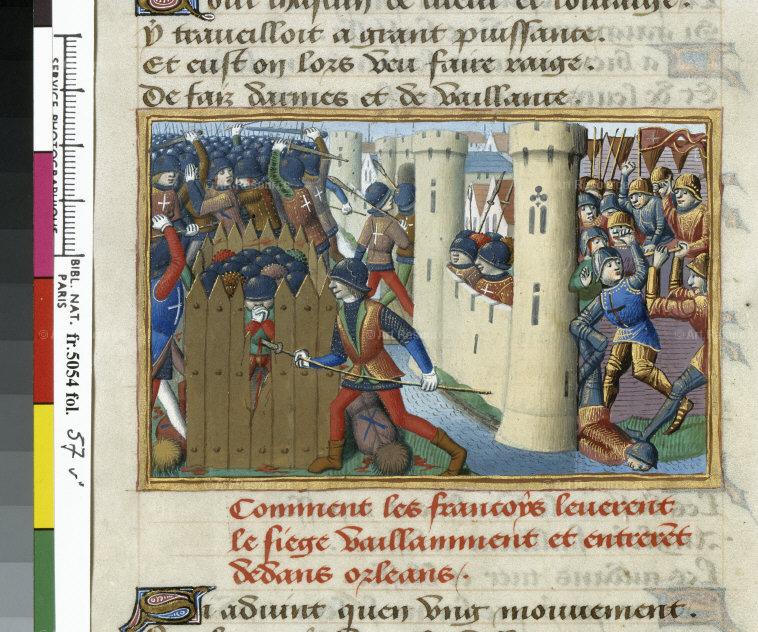 Tout
de
et
y traveilloit a grant puissance.
Et eust on lors veu faire raige.
De faiz darmes et de vaillance.
Comment les francoys leuerent
le siege vaillamment et entrerēt
dedans orleans.
Si aduint quen vng mouuement.
SERVICE PHOTOGRAPHIQUE
BIBL. NAT.
PARIS
fr.5054 fol. 57 v°